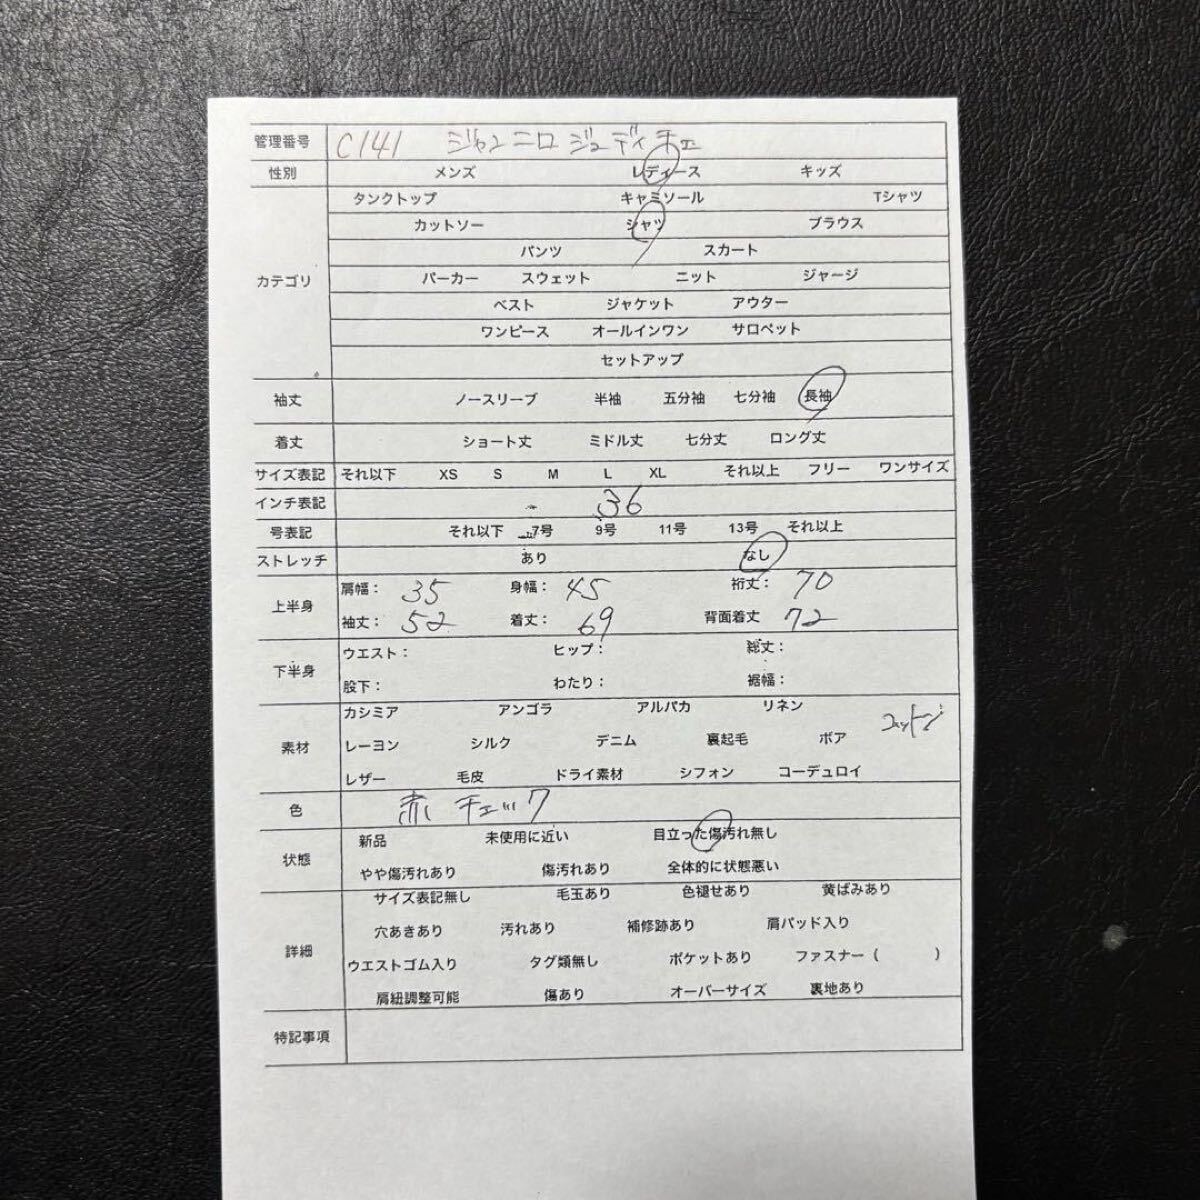 管理番号 C141 ジャンニロ ジュディチェ
性別 メンズ レディース キッズ
タンクトップ キャミソール Tシャツ
カットソー シャツ ブラウス
パンツ スカート
カテゴリ パーカー スウェット ニット ジャージ
ベスト ジャケット アウター
ワンピース オールインワン サロペット
セットアップ
袖丈 ノースリーブ 半袖 五分袖 七分袖 長袖
着丈 ショート丈 ミドル丈 七分丈 ロング丈
サイズ表記 それ以下 XS S M L XL それ以上 フリー ワンサイズ
インチ表記 36
号表記 それ以下 7号 9号 11号 13号 それ以上
ストレッチ あり なし
上半身 肩幅： 35 身幅： 45 裄丈： 70
袖丈： 52 着丈： 69 背面着丈 72
下半身 ウエスト： ヒップ： 総丈：
股下： わたり： 裾幅：
カシミア アンゴラ アルパカ リネン コットン
素材 レーヨン シルク デニム 裏起毛 ボア
レザー 毛皮 ドライ素材 シフォン コーデュロイ
色 赤 チェック
状態 新品 未使用に近い 目立った傷汚れ無し
やや傷汚れあり 傷汚れあり 全体的に状態悪い
サイズ表記無し 毛玉あり 色褪せあり 黄ばみあり
詳細 穴あきあり 汚れあり 補修跡あり 肩パッド入り
ウエストゴム入り タグ類無し ポケットあり ファスナー（ ）
肩紐調整可能 傷あり オーバーサイズ 裏地あり
特記事項